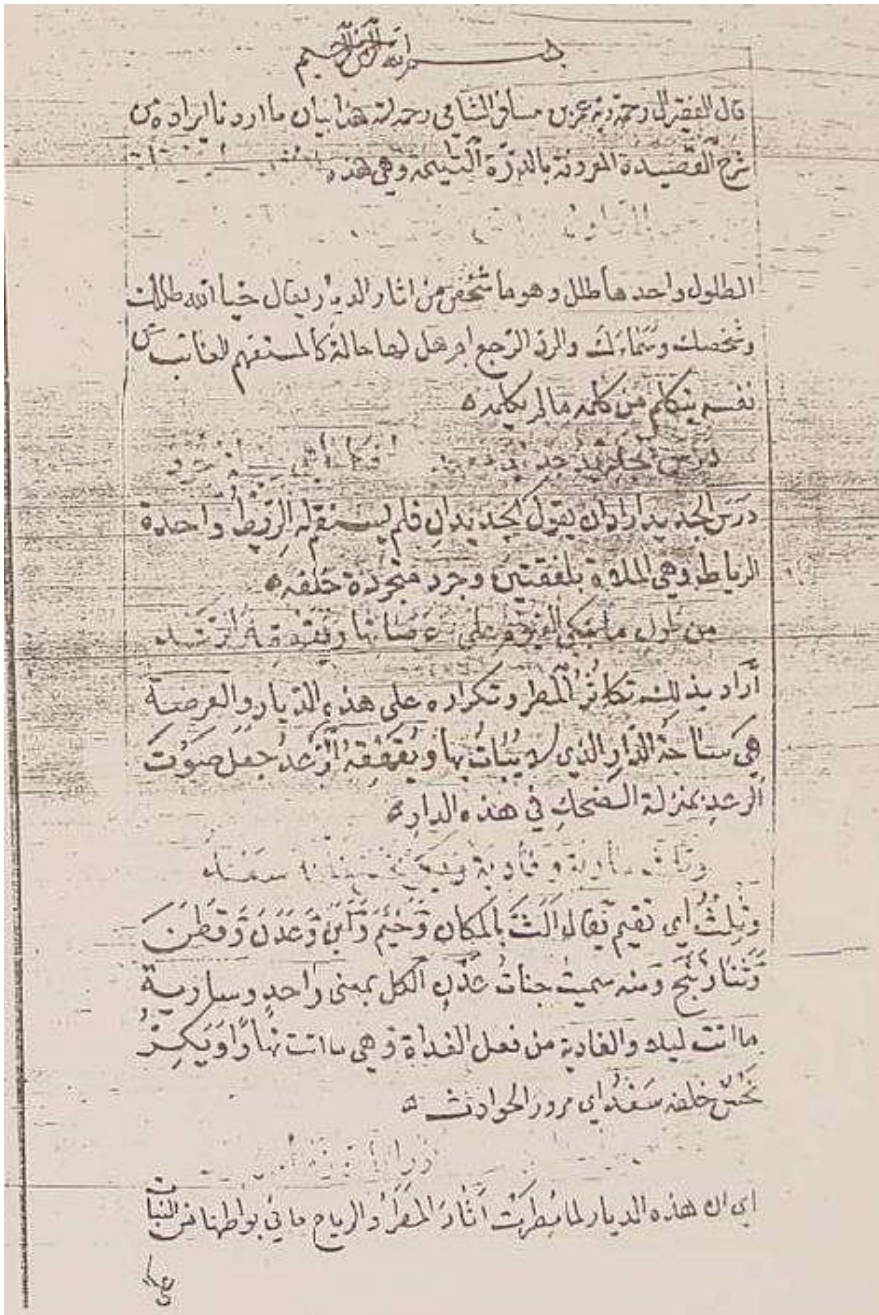 بسم الله الرحمن الرحيم
قال الفقير الى رحمة ربه عمر بن مسافر الشامي رحمه الله هذا بيان ما اردنا ايراده من
شرح القصيدة المعروفة بالدرة اليتيمة وهي هذه
الطلول واحدها طلل وهو ما شخص من اثار الديار يقال حيا الله طللك
وشخصك وسماءك والرد الرجع ام هل لها حالة كالمستفهم المخاطب من
نفسه يتكلم من كلمه مالم يكلمه
درس الجديد جديد
درس الجديد اراد ان يقول الجديدان فلم يستقم له الريط واحدة
الرياط وهي الملاة بلفقتين وجرد متجردة خلقه
من طول ما يبكي الغيوم على عرصاتها ويقهقه الرعد
أراد بذلك تكاثر المطر وتكراره على هذه الديار والعرصة
هي ساحة الدار الذي لا يبات بها ويقهقه الرعد جعل صوت
الرعد بمنزلة الضحك في هذه الدار
وتلث سارية وغادية ويكر نحس خلفه سعد
وتلث اي تقيم يقال الث بالمكان وخيم وابن وعدن وقطن
وتنا ومنه سميت جنات عدن الكل بمعنى واحد وسارية
ما اتت ليلا والغادية من فعل الغداة وهي ما اتت نهارا ويكر
نحس خلفه سعد اي مرور الحوادث
اي ان هذه الديار لما مطرت أثار المطر والرياح ما في بواطنها من النبات